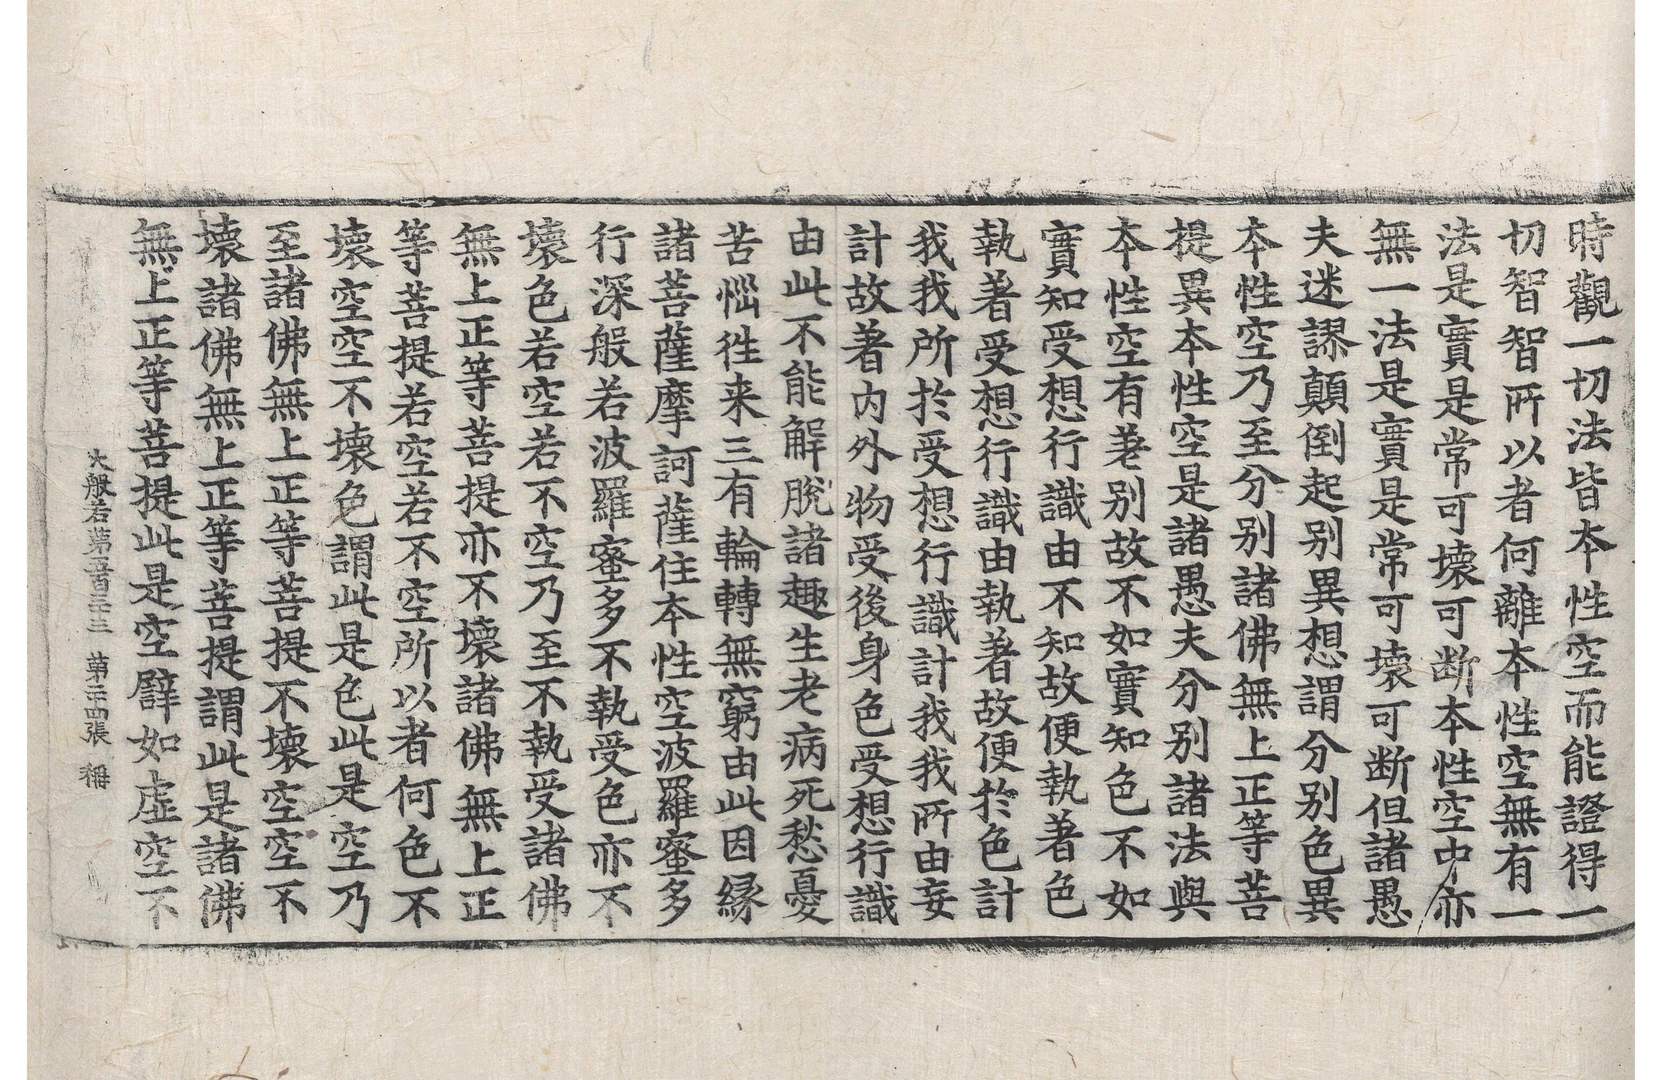 時觀一切法皆本性空而能證得一
切智智所以者何離本性空無有一
法是實是常可壞可断本性空中亦
無一法是實是常可壞可断但諸愚
夫迷謬顛倒起别異想謂分别色異
本性空乃至分别諸佛無上正等菩
提異本性空是諸愚夫分别諸法與
本性空有差别故不如實知色不如
實知受想行識由不知故便執著色
執著受想行識由執著故便於色計
我我所於受想行識計我我所由妄
計故著内外物受後身色受想行識
由此不能解脫諸趣生老病死愁憂
苦惱徃来三有輪轉無窮由此因緣
諸菩薩摩訶薩住本性空波羅蜜多
行深般若波羅蜜多不執受色亦不
壞色若空若不空乃至不執受諸佛
無上正等菩提亦不壞諸佛無上正
等菩提若空若不空所以者何色不
壞空空不壞色謂此是色此是空乃
至諸佛無上正等菩提不壞空空不
壞諸佛無上正等菩提謂此是諸佛
無上正等菩提此是空譬如虛空不
大般若第五百三 第二十四張